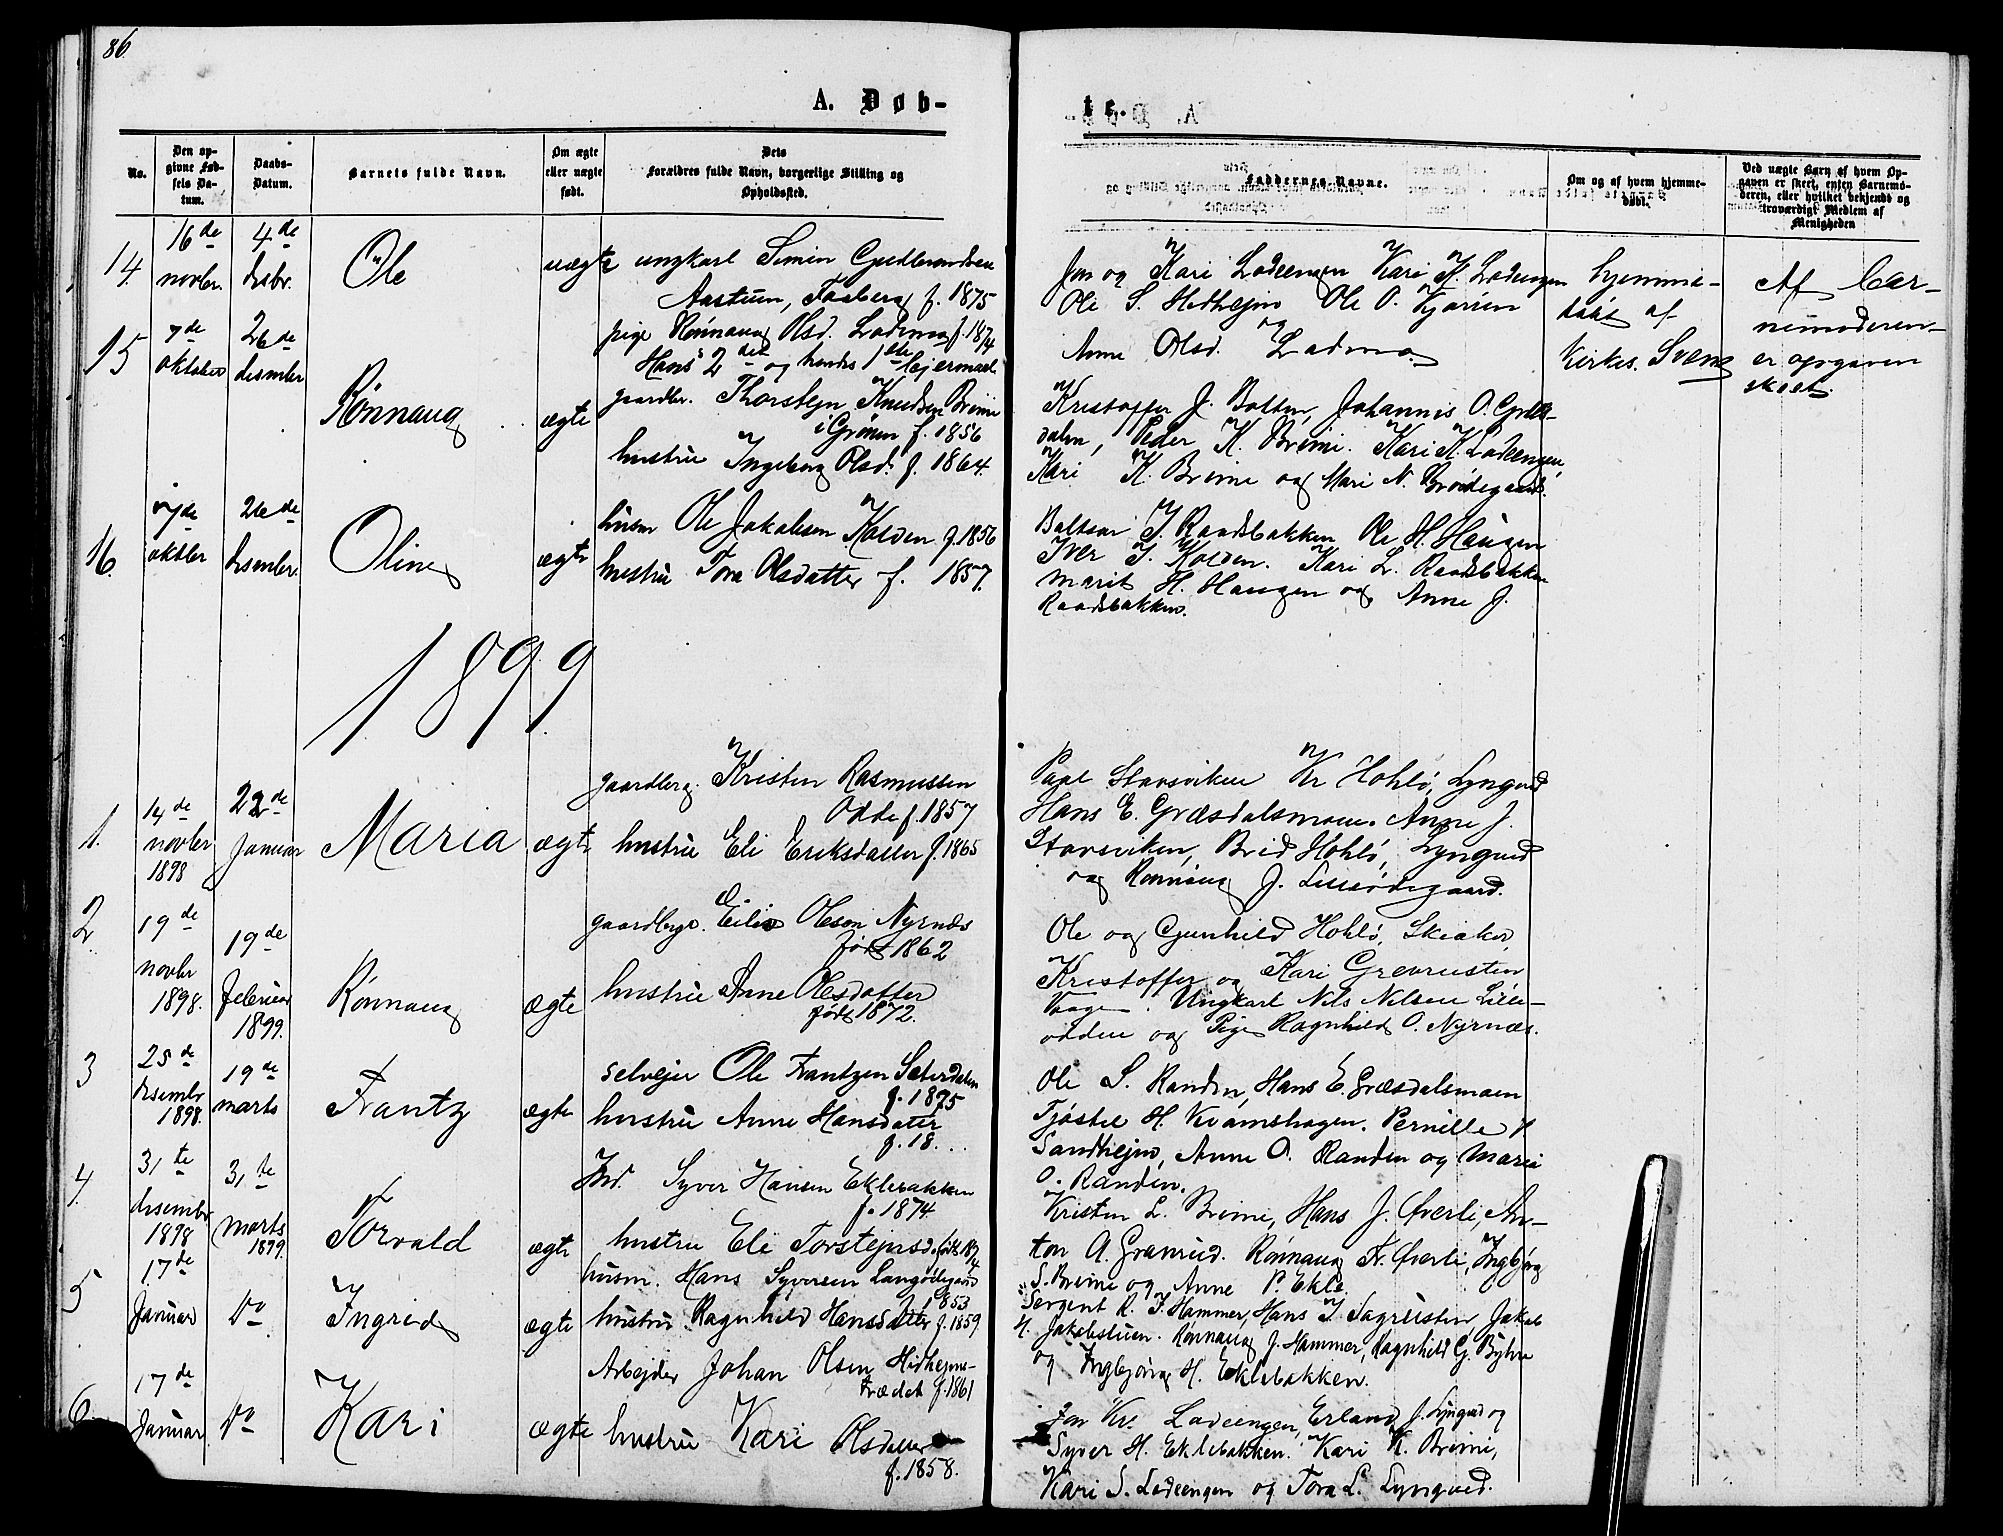 86
A. Døb-
No.
Den op-
givne Fød-
sels Da-
tum.
Daabs-
Datum.
Barnets fulde Navn.
Om ægte
eller uægte
født.
Dets
Forældres fulde Navn, borgerlige Stilling og
Opholdssted.
Faddernes Navne.
Om og af hvem hjemme-
døbt.
Ved uægte Barn af hvem Op-
gaven er skeet, enten Barnemo-
deren, eller hvilket bekjendt og
troværdigt Medlem af
Menigheden
14.
16de
novbr.
4de
desbr.
Ole
uægte
ungkarl Simen Gudbrandsen
Aastuen, Faaberg f. 1875
pige Rønnaug Olsd. Ladmo f. 1874
Hans 2det og hendes 1ste lejermaal
Jon og Kari Ladeengen Kari K. Ladeengen
Ole S. Hidhejm Ole O. Kjørren
og
Anne Olsd. Ladmo
hjemme-
døbt af
Kirkes. Svene
Af Bar-
nemoderen
er opgaven
skeet.
15
7de
oktober
26de
desmber
Rønnaug
ægte
gaardbr. Thorstejn Knudsen Brimi
i Grönen f. 1856
hustru Ingeborg Olsd. f. 1864.
Kristoffer J. Botten, Johannis O. Græs-
dalen, Peder K. Brimi. Kari K. Ladeengen,
Kari K. Brimi og Mari N. Brødegaard.
16.
oktbr
26de
desember.
Oline
ægte
husm Ole Jakobsen Kolden f. 1856
hustru Tora Olsdatter f. 1857.
Baltsar I. Raadsbakken Ole H. Haugen
Iver I. Kolden. Kari L. Raadsbakken
Marit H. Haugen og Anne J.
Raadsbakken.
1899
1.
14de
novbr
1898
22de
Januar
Maria
ægte
gaardbrg. Kristen Rasmussen
Odde f. 1857
hustru Eli Eriksdatter f. 1865
Paal Storsviken Kr Hohlö, Lyngved
Hans E. Græsdalsmoen. Anne J.
Storsviken, Brid Hohlö, Lyngved
og Rønnaug J. Lissødegaard.
2
19de
novbr
1898.
19de
februar
1899.
Rønnaug
ægte
gaardbrg. Eilif Olsson Nyrnæs
født 1862
hustru Anne Olesdatter
født 1872.
Ole og Gunhild Hohlö, Skiaker,
Kristoffer og Kari Grevrusten
Vaage. Ungkarl Nils Nilsen Lille-
odden og Pige Ragnhild O. Nyrnæs.
3
25de
desembr
1898.
19de
marts
Frantz
ægte
selvejer Ole Frantzen Sæterdalen
f. 1875
hustru Anne Hansdater
f. 18. . .
Ole S. Randen, Hans E. Græsdalsmoen
Tjöstel H. Kvamshagen. Pernille P
Sandhejm, Anne O. Randen og Maria
O. Randen.
4.
31te
desembr
1898
31te
marts
1899.
Torvald
ægte
Ind. Syver Hansen Eklebakken
f. 1874
hustru Eli Torstejnsd. født 1874
Kristen L. Brimi, Hans J. Øverli, An-
ton A. Granrud. Rønnaug Fr. Øverli, Ingbjørg
S. Brimi og Anne P. Ekle
5
17de
Januar
Do
Ingrid
ægte
husm. Hans Syversen Langødegaard
f. 1853
hustru Ragnhild Hansdatter f. 1859
Sergent R. I. Hammer, Hans I. Sagrusten Jakob
H. Jakobstuen. Rønnaug J. Hammer, Ragnhild G. Byhre
og Ingbjørg H. Eklebakken.
6
17de
Januar
Do
Kari
ægte
Arbejder Johan Olsen Hidhejms-
trædet f. 1861
hustru Kari Olsdatter
f. 1858.
Jon Kr. Ladeengen, Erland J. Lyngved og
Syver H. Eklebakken. Kari K. Brimi,
Kari S. Ladeengen og Tora L. Lyngved.